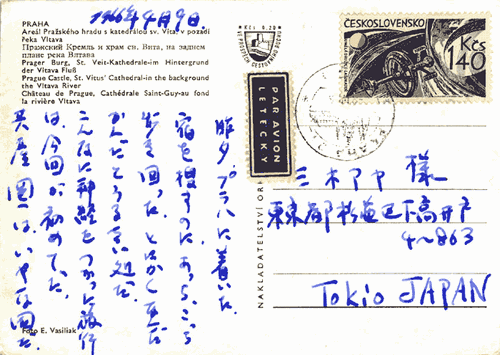 1966年4月9日.
PRAHA
Areál Pražského hradu s katedrálou sv. Víta, v pozadí
řeka Vltava
Пражский Кремль и храм св. Вита, на заднем
плане река Влтава
Prager Burg, St. Veit-Kathedrale-im Hintergrund
der Vltava Fluß
Prague Castle, St. Vitus' Cathedral-in the background
the Vltava River
Château de Prague, Cathédrale Saint-Guy-au fond
la rivière Vltava
Kčs 0,20
ČESKOSLOVENSKO
Kčs
1'40
PAR AVION
LETECKY
昨夕プラハに着いた.
宿を探すのにあっち、こっち
歩き回った. とにかく
こんなに神経をつかった旅行
は、今回が初めてだ.
共産圏はいやな国だ
三木アヤ 様
東京都杉並区下高井戸
4~863
Tokio JAPAN
NAKLADATELSTVÍ
Foto E. Vasiliak